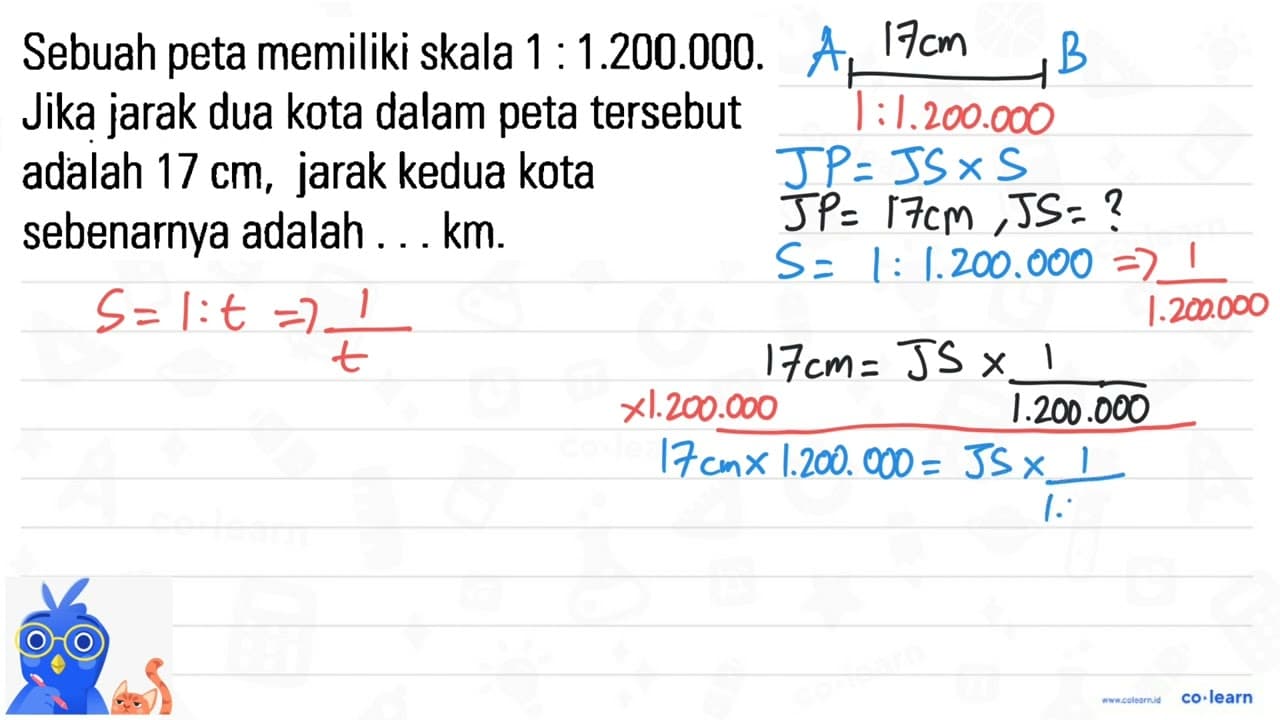 Sebuah peta memiliki skala 1 : 1.200.000.
Jika jarak dua kota dalam peta tersebut
adalah 17 cm, jarak kedua kota
sebenarnya adalah . . . km.
S = 1 : t => 1/t
A 17cm B
1 : 1.200.000
JP = JS x S
JP = 17cm , JS = ?
S = 1 : 1.200.000 => 1/1.200.000
17cm = JS x 1/1.200.000
x1.200.000
17cm x 1.200.000 = JS x 1/1.
co·learn
co·learn
co·learn
www.colearn.id co·learn